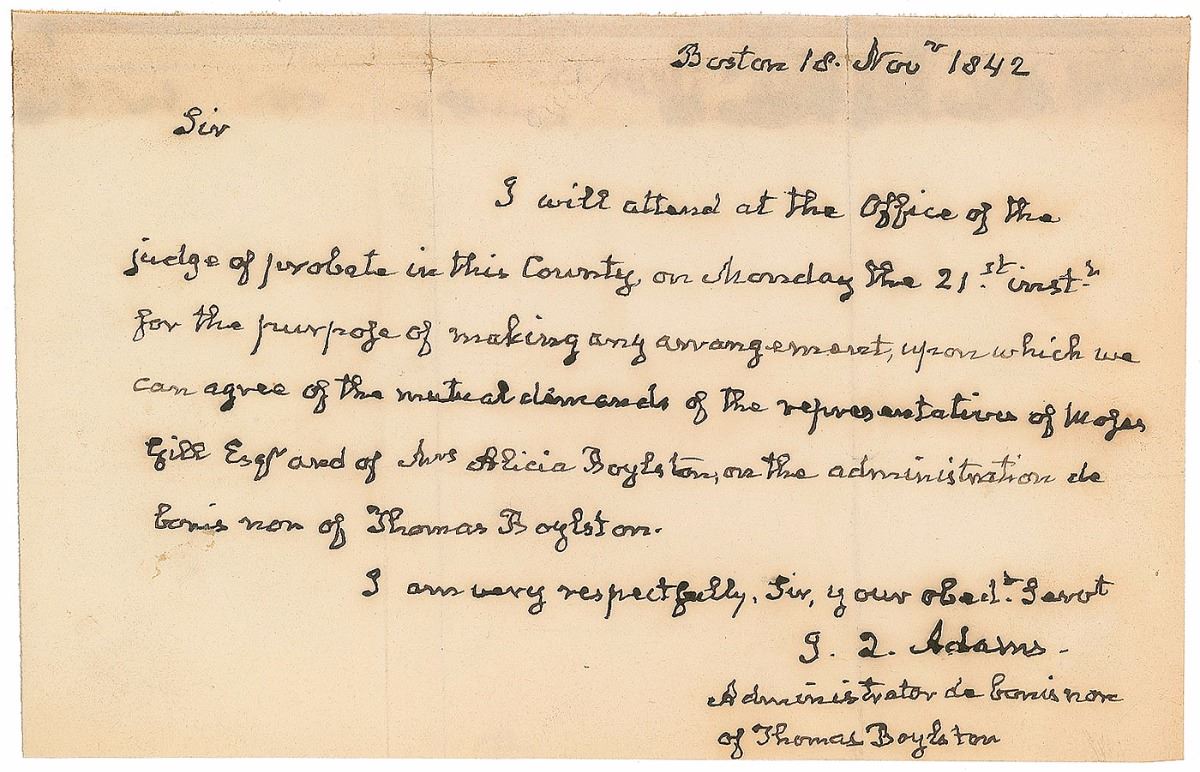 Boston 18. Nov.r 1842
Sir
I will attend at the Office of the
judge of probate in this County, on Monday the 21.st inst.t
for the purpose of making any arrangement, upon which we
can agree of the mutual demands of the representatives of Moses
Gill Esqr and of Mrs Alicia Boylston, on the administration de
bonis non of Thomas Boylston.
I am very respectfully, Sir, your obed.t Servt
J. Q. Adams.
Administrator de bonis non
of Thomas Boylston